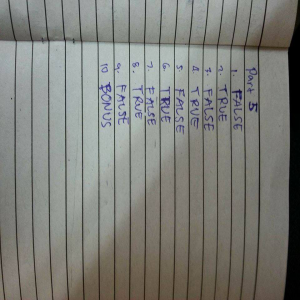 Part 5
1. FALSE
2. TRUE
3. FALSE
4. TRUE
5. FALSE
6. TRUE
7. FALSE
8. TRUE
9. FALSE
10 BONUS